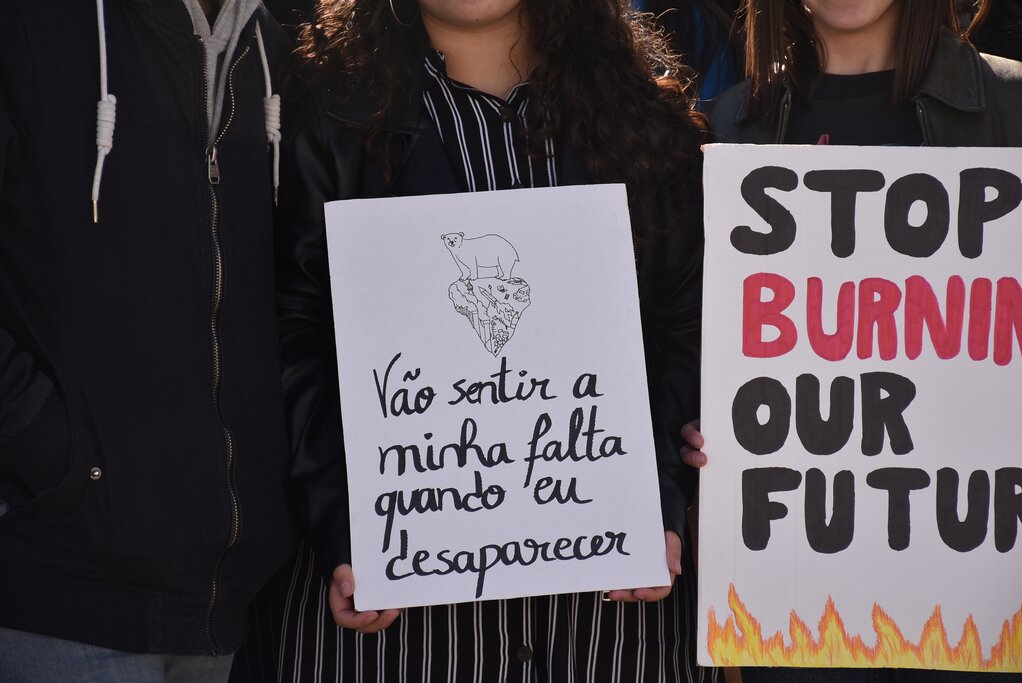 Vão sentir a
minha falta
quando eu
desaparecer
STOP
BURNIN
OUR
FUTUR